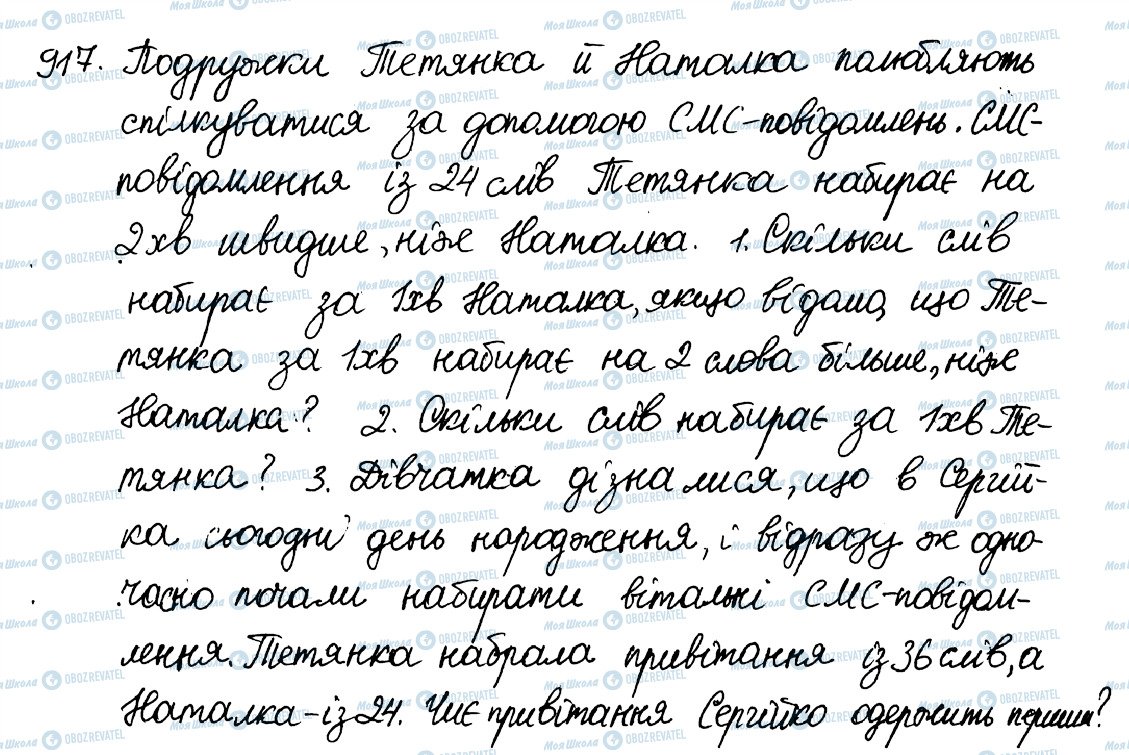 917. Подружки Тетянка й Наталка полюбляють
спілкуватися за допомогою СМС-повідомлень. СМС-
повідомлення із 24 слів Тетянка набирає на
2хв швидше, ніж Наталка. 1. Скільки слів
набирає за 1хв Наталка, якщо відомо, що Те-
тянка за 1хв набирає на 2 слова більше, ніж
Наталка? 2. Скільки слів набирає за 1хв Те-
тянка? 3. Дівчатка дізналися, що в Сергій-
ка сьогодні день народження, і відразу ж одно-
часно почали набирати вітальні СМС-повідом-
лення. Тетянка набрала привітання із 36 слів, а
Наталка - із 24. Чиє привітання Сергійко одержить першим?
МояШкола OBOZREVATEL